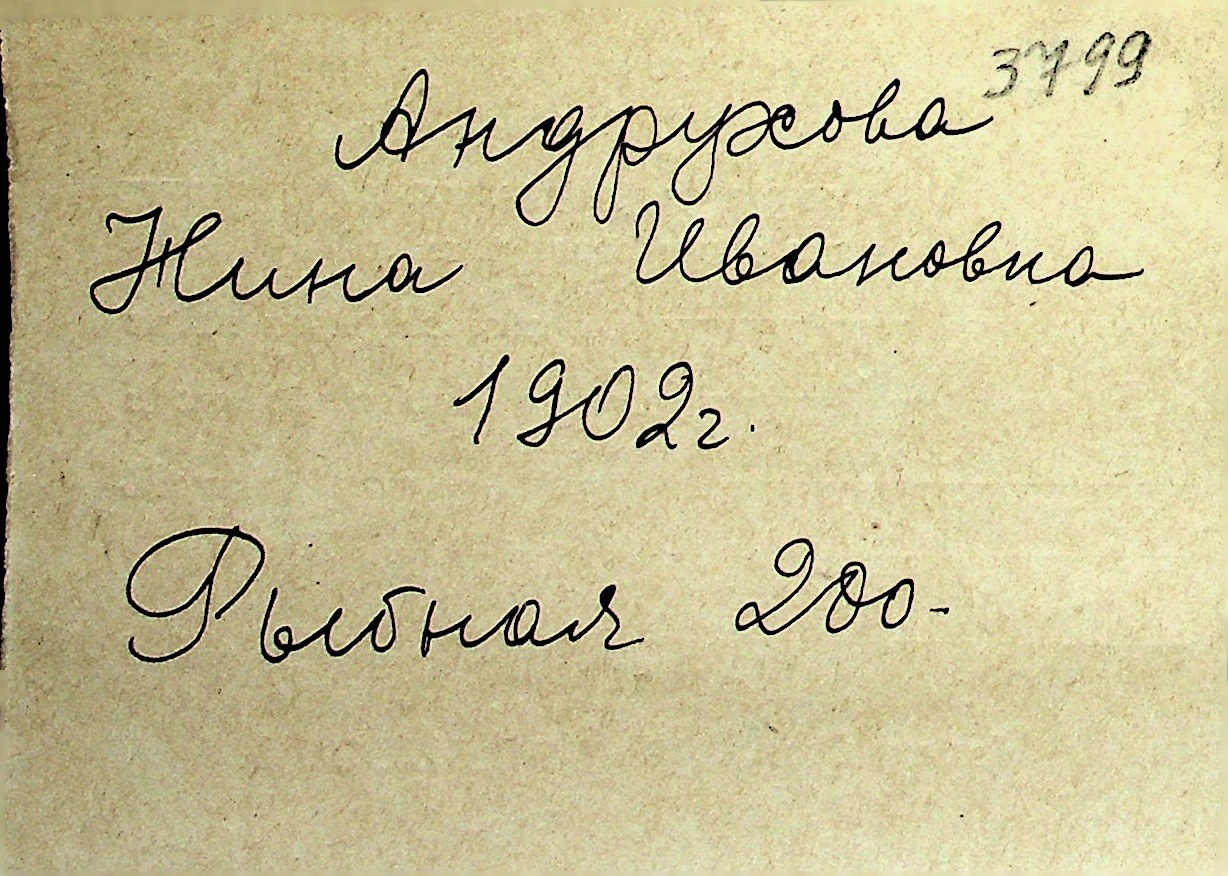 3799
Андрухова
Нина Ивановна
1902г.
Рыбная 200-